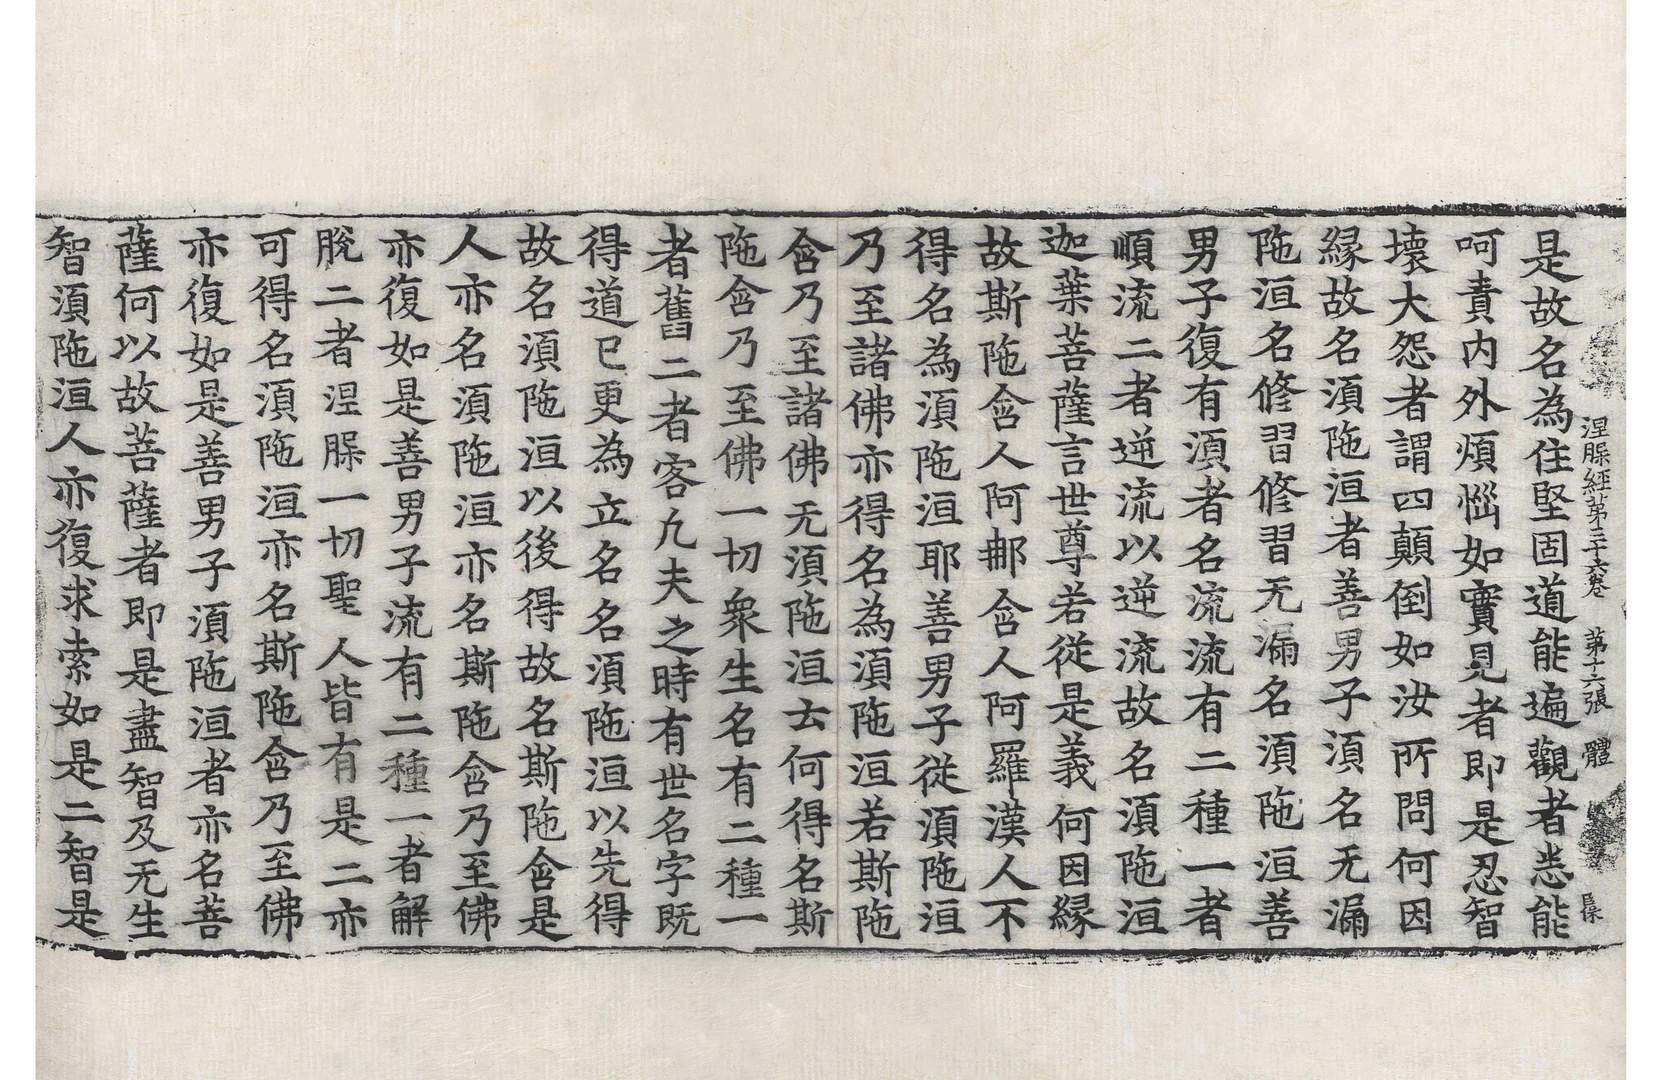 涅槃經苐三十六卷 苐十六張 體
是故名為住堅固道能遍觀者悉能
呵責内外煩惱如實見者即是忍智
壞大怨者謂四顛倒如汝所問何因
縁故名湏陁洹者善男子湏名无漏
陁洹名修習修習无漏名湏陁洹善
男子復有湏者名流流有二種一者
順流二者逆流以逆流故名湏陁洹
迦葉菩薩言世尊若從是義何因縁
故斯陁含人阿那含人阿羅漢人不
得名為湏陁洹耶善男子従湏陁洹
乃至諸佛亦得名為湏陁洹若斯陁
含乃至諸佛无湏陁洹云何得名斯
陁含乃至佛一切衆生名有二種一
者舊二者客凡夫之時有世名字既
得道已更為立名名湏陁洹以先得
故名湏陁洹以後得故名斯陁含是
人亦名湏陁洹亦名斯陁含乃至佛
亦復如是善男子流有二種一者解
脫二者涅槃一切聖人皆有是二亦
可得名湏陁洹亦名斯陁含乃至佛
亦復如是善男子湏陁洹者亦名菩
薩何以故菩薩者即是盡智及无生
智湏陁洹人亦復求索如是二智是